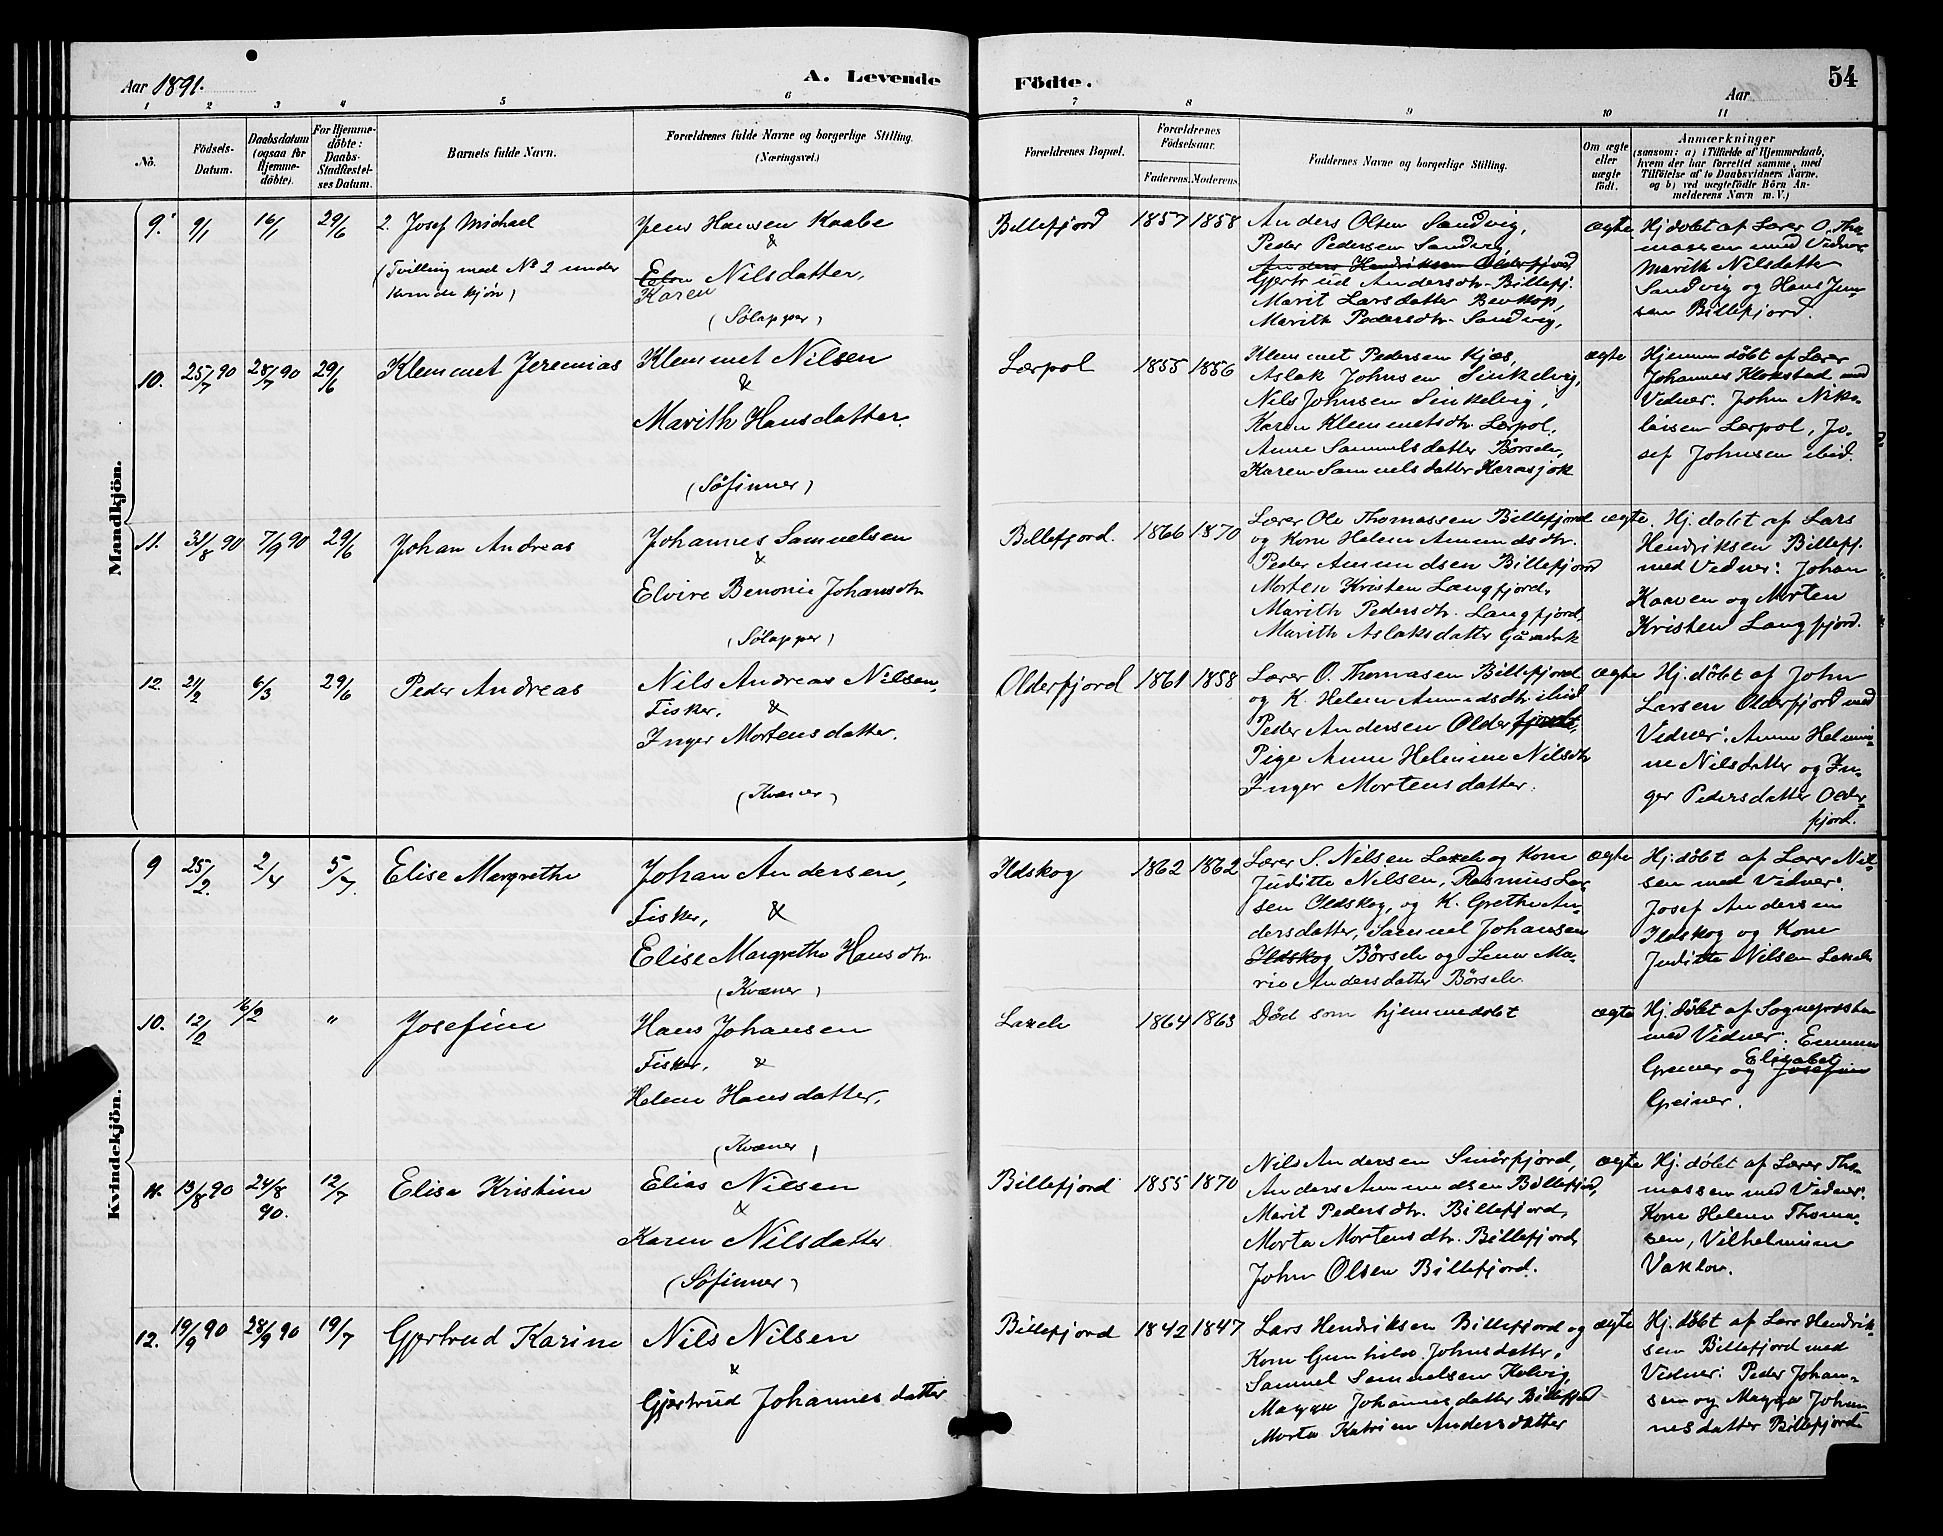 Aar 1891.
A. Levende Födte.
Aar
54
1 2 3 4 5 6 7 8 9 10 11
No.
Födsels-Datum.
Daabsdatum (ogsaa for Hjemme-döbte).
For Hjemme-döbte: Daabs-Stadfæstel-ses Datum.
Barnets fulde Navn.
Forældrenes fulde Navne og borgerlige Stilling.
(Næringsvei.)
Forældrenes Bopæl.
Forældrenes Födselsaar.
Faderens. Moderens.
Faddernes Navne og borgerlige Stilling.
Om ægte eller uægte födt.
Anmærkninger
(saasom: a) i Tilfælde af Hjemmedaab,
hvem der har forrettet samme, med
Tilföielse af to Daabsvidners Navne,
og b) ved uægtefödte Börn An-
melderens Navn m. V.)
Mandkjön.
9. 9/1 16/1 29/6
2. Josef Michael
(Tvilling med No 2 under
kvindekjön)
Jens Hansen Kaabe
&
Elen Nilsdatter,
Karen
(Sølapper)
Billefjord 1857 1858
Anders Olsen Sandvig,
Peder Pedersen Sandvig,
Anders Hendriksen Olderfjord
Gjertrud Andersdtr. Billefj.
Marit Larsdatter Bevkop,
Marith Pedersdtr. Sandvig,
ægte
Hj.døbt af Lærer O. Tho-
massen med Vidner
Marith Nilsdatter
Sandvig og Hans Jen-
sen Billefjord.
10. 25/7 90 28/7 90 29/6
Klemmet Jeremias
Klemmet Nilsen
&
Marith Hansdatter.
(Søfinner)
Lærpol 1855 1856
Klemmet Pedersen Kjæs,
Aslak Johnsen Sinkelvig,
Nils Johnsen Sinkelvig,
Karen Klemmetsdtr. Lærpol.
Anne Samuelsdatter Børselv,
Karen Samuelsdatter Karasjok
ægte
Hjemmedøbt af Lærer
Johannes Klokstad med
Vidner: John Niko-
laisen Lærpol, Jo-
sef Johnsen ibid.
11. 31/8 90 7/9 90 29/6
Johan Andreas
Johannes Samuelsen
&
Elvire Benonie Johansdtr
(Sølapper)
Billefjord. 1866 1870
Lærer Ole Thomassen Billefjord
og Kone Helene Amundsdtr.
Peder Amundsen Billefjord
Morten Kristen Langfjord,
Marith Pedersdtr. Langfjord,
Marith Aslaksdatter
ægte.
Hj.døbt af Lars
Hendriksen Billefj.
med Vidner: Johan
og Morten
Kristen Langfjord.
12. 21/2 6/3 29/6
Peder Andreas
Nils Andreas Nilsen,
Fisker, &
Inger Mortensdatter.
(Kvæner)
Olderfjord 1861 1858
Lærer O. Thomasen Billefjord
og K. Helene Amundsdtr. ibid
Peder Andersen Olderfjord,
Pige Anne Helmine Nilsdtr
Inger Mortensdatter.
ægte
Hj.døbt af John
Larsen Olderfjord med
Vidner: Anne Helmi-
ne Nilsdatter og In-
ger Pedersdatter Older-
fjord.
Kvindekjön.
9 25/2. 2/4 5/7.
Elise Margrethe
Johan Andersen,
Fisker, &
Elise Margrethe Hansdtr.
(Kvæner)
Ildskog 1862 1862
Lærer S. Nilsen Laxelv og Kone
Juditte Nilsen, Rasmus Lar-
sen Oldskog, og K. Grethe An-
dersdatter, Samuel Johansen
Ildskog Børselv og Lena Ma-
rie Andersdatter Børselv
ægte
Hj.døbt af Lærer Nil-
sen med Vidner:
Josef Andersen
Ildskog og Kone
Juditte Nilsen Laxelv
10. 12/2 16/2 "
Josefine
Hans Johansen
Fisker, &
Helene Hansdatter,
(Kvæner)
Laxelv 1864 1863
Død som hjemmedøbt
ægte
Hj.døbt af Sognepræsten
med Vidner: Emma
Elisabet
Greiner og Josefine
Greiner.
11. 13/8 90 24/8 90. 12/7
Elisa Kristine
Elias Nilsen
&
Karen Nilsdatter.
(Søfinner)
Billefjord 1855 1870
Nils Andersen Smørfjord,
Anders Amundsen Billefjord,
Marit Pedersdtr. Billefjord,
Morta Mortensdtr. Billefjord,
John Olsen Billefjord.
ægte
Hj.døbt af Lærer Tho-
massen med Vidner:
Kone Helene Thoma-
sen, Vilhelmine
12. 19/9 90 28/9 90 19/7
Gjertrud Karine
Nils Nilsen
&
Gjertrud Johannesdatter
Billefjord 1842 1847
Lars Hendriksen Billefjord og
Kone Gunhild Johnsdatter,
Samuel Samuelsen Kolvig,
Magga Johannesdatter Billefjord
Morta Katrine Andersdatter
ægte
Hj.døbt af Lars Hendrik-
sen Billefjord med
Vidner: Peder Johan-
sen og Magga Johan-
nesdatter Billefjord